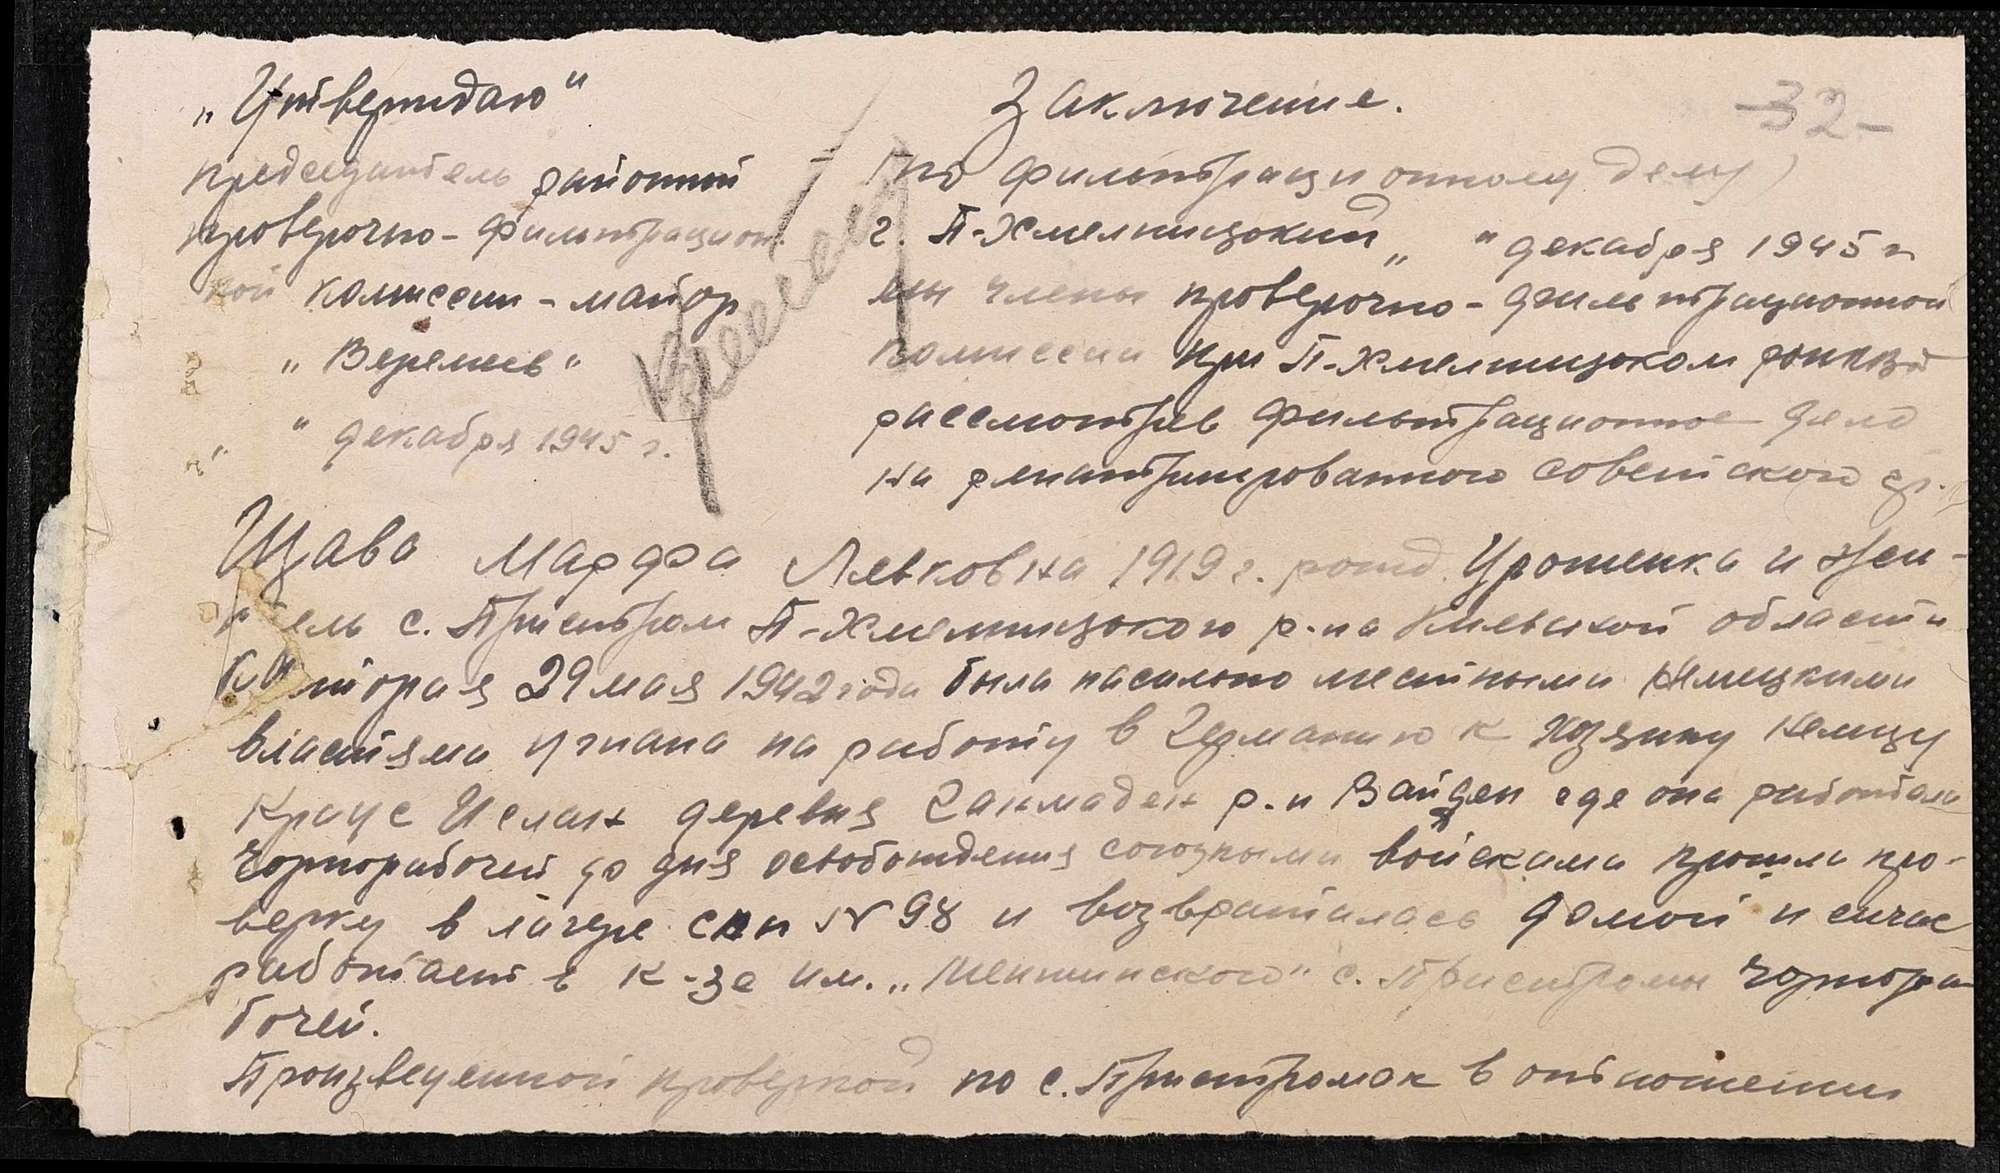 „Утверждаю“
председатель районной
проверочно-фильтрацион.
ной комиссии - майор
„Веремеев“
„ “ декабря 1945 г.
Заключение.
-32-
(по фильтрационному делу)
г. П-Хмельницкий „ “ декабря 1945 г
мы члены проверочно-фильтрационной
комиссии при П-Хмельницком
рассмотрев фильтрационное дело
на репатриированного советского гр.
Щава Марфа Левковна 1919 г. рожд. Уроженка и жи-
тель с. Пристром П-Хмельницкого р-на Киевской области
которая 29 мая 1942 года была насильно местными немецкими
властями угнана на работу в Германию к хозяину немцу
Краус деревня р-н Вайден где она работала
чорнорабочей до дня освобождения союзными войсками прошла про-
верку в лагере спп N 98 и возвратилась домой и сичас
работает в к-зе им. „Меншинского“ с. Пристромы чорнора-
бочей.
Произведенной проверкой по с. Пристромах в отношении